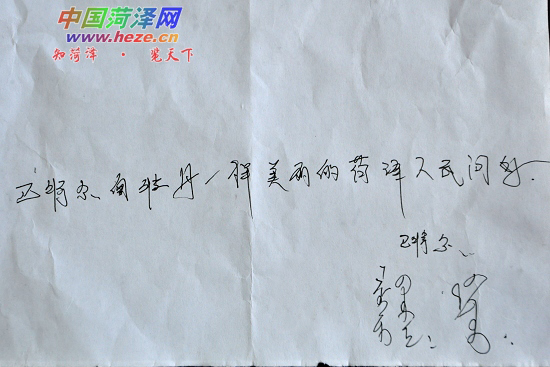 中国菏泽网
www.heze.cn
知菏泽 · 览天下
巴特尔向牡丹一样美丽的菏泽人民问好.
巴特尔